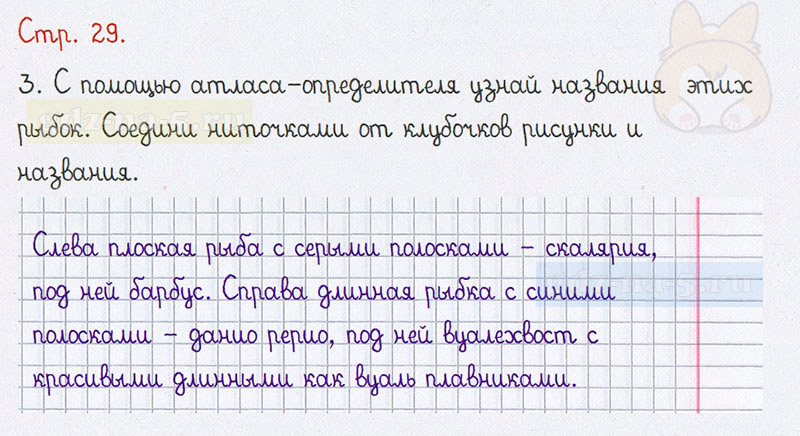 Стр. 29.
3. С помощью атласа-определителя узнай названия этих
рыбок. Соедини ниточками от клубочков рисунки и
названия.
Слева плоская рыба с серыми полосками - скалярия,
под ней барбус. Справа длинная рыбка с синими
полосками - данио рерио, под ней вуалехвост с
красивыми длинными как вуаль плавниками.